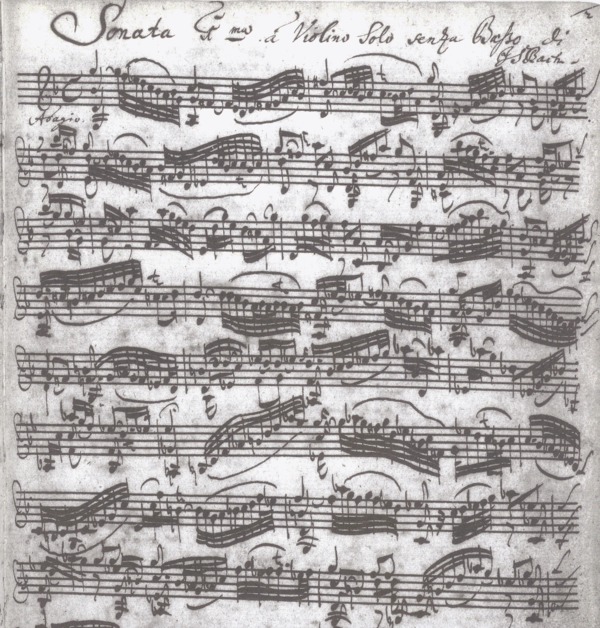 Sonata 1ma à Violino Solo senza Basso di
JS Bach.
Adagio.